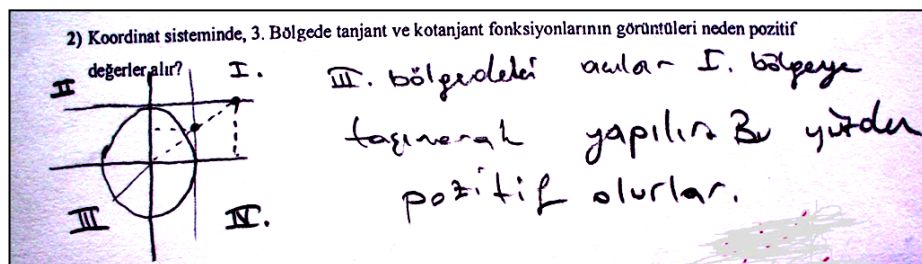 2) Koordinat sisteminde, 3. Bölgede tanjant ve kotanjant fonksiyonlarının görüntüleri neden pozitif
değerler alır?
II
I.
III
IV.
III. bölgedeki açılar I. bölgeye
taşınarak yapılır. Bu yüzden
pozitif olurlar.